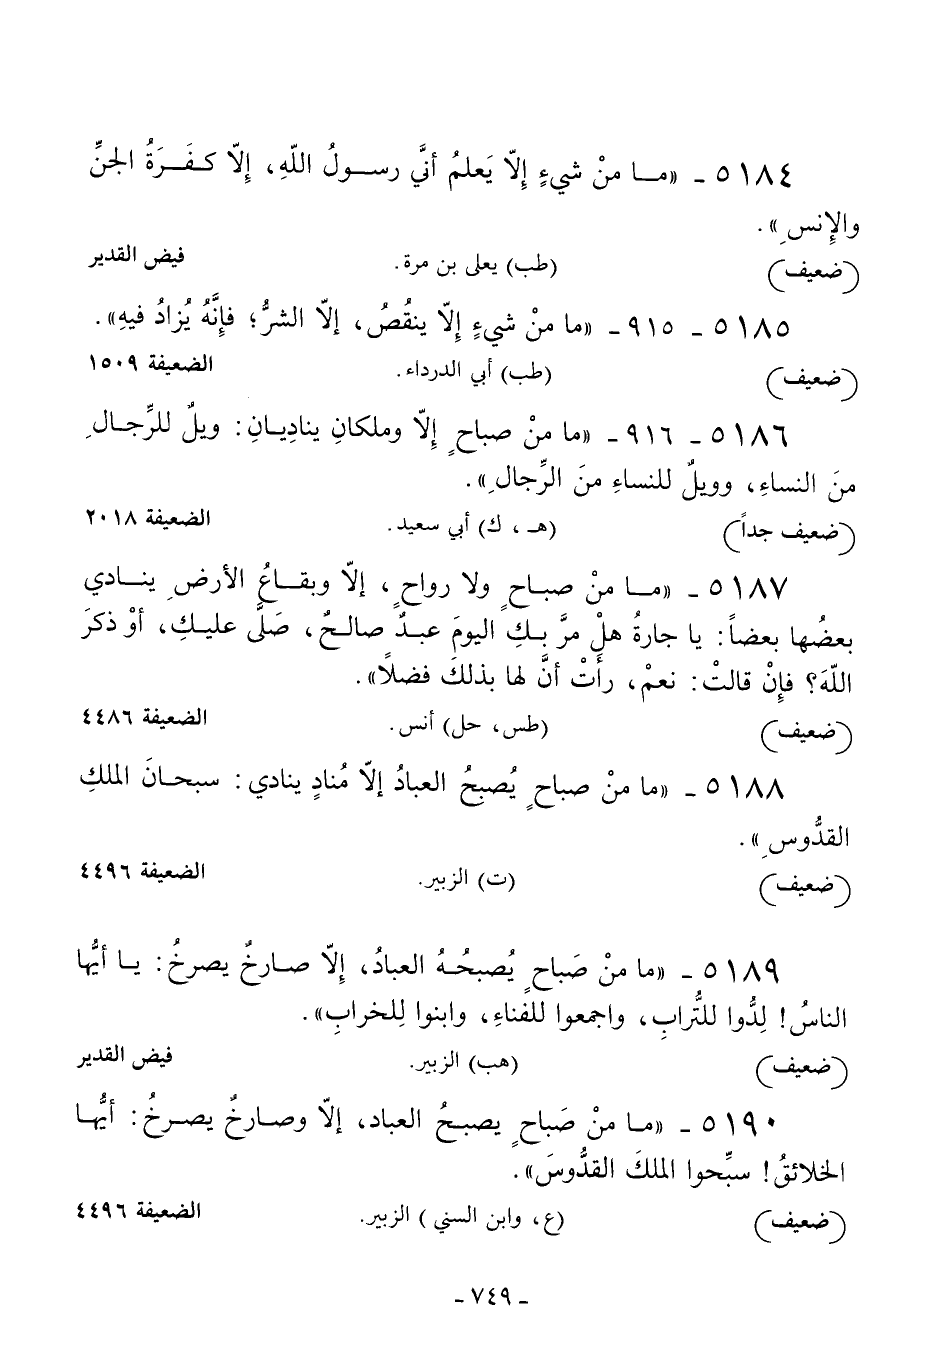 ٥١٨٤ ـ «مـا منْ شيءٍ إِلّا يَعلمُ أنَّي رسـولُ اللّهِ، إِلّا كـفَـرَةُ الجنِّ
والإِنسِ».
(ضعيف) (طب) يعلى بن مرة. فيض القدير
٥١٨٥ ـ ٩١٥ ـ «ما منْ شيءٍ إِلّا ينقُصُ، إلّا الشرُّ؛ فإنَّهُ يُزادُ فيهِ».
(ضعيف) (طب) أبي الدرداء. الضعيفة ١٥٠٩
٥١٨٦ ـ ٩١٦ ـ «ما منْ صباحٍ إِلّا وملكانِ يناديـانِ: ويلٌ للرِّجـالِ
منَ النساءِ، وويلٌ للنساءِ منَ الرِّجالِ».
(ضعيف جداً) (هـ ، ك) أبي سعيد. الضعيفة ٢٠١٨
٥١٨٧ ـ «مـا منْ صباحٍ ولا رواحٍ، إلّا وبقـاعُ الأرضِ ينـادي
بعضُها بعضاً: يا جارةُ هلْ مرَّ بـكِ اليومَ عبـدٌ صالـحٌ، صَلَّى عليـكِ، أوْ ذكرَ
اللّهَ؟ فإِنْ قالتْ: نعمْ، رأَتْ أنَّ لها بذلكَ فضلاً».
(ضعيف) (طس، حل) أنس. الضعيفة ٤٤٨٦
٥١٨٨ ـ «ما منْ صباحٍ يُصبحُ العبادُ إلّا مُنادٍ ينادي: سبحـانَ الملكِ
القدُّوسِ».
(ضعيف) (ت) الزبير. الضعيفة ٤٤٩٦
٥١٨٩ ـ «ما منْ صَباحٍ يُصبحُـهُ العبادُ، إِلّا صـارخٌ يصرخُ: يـا أيُّها
الناسُ! لِدُوا للتُّرابِ، واجمعوا للفَناءِ، وابنوا لِلخرابِ».
(ضعيف) (هب) الزبير. فيض القدير
٥١٩٠ ـ «مـا منْ صَباحٍ يصبـحُ العباد، إلّا وصـارخٌ يصـرخُ: أيُّهـا
الخلائقُ! سبِّحوا الملكَ القدُّوسَ».
(ضعيف) (ع، وابن السني) الزبير. الضعيفة ٤٤٩٦
ـ ٧٤٩ ـ